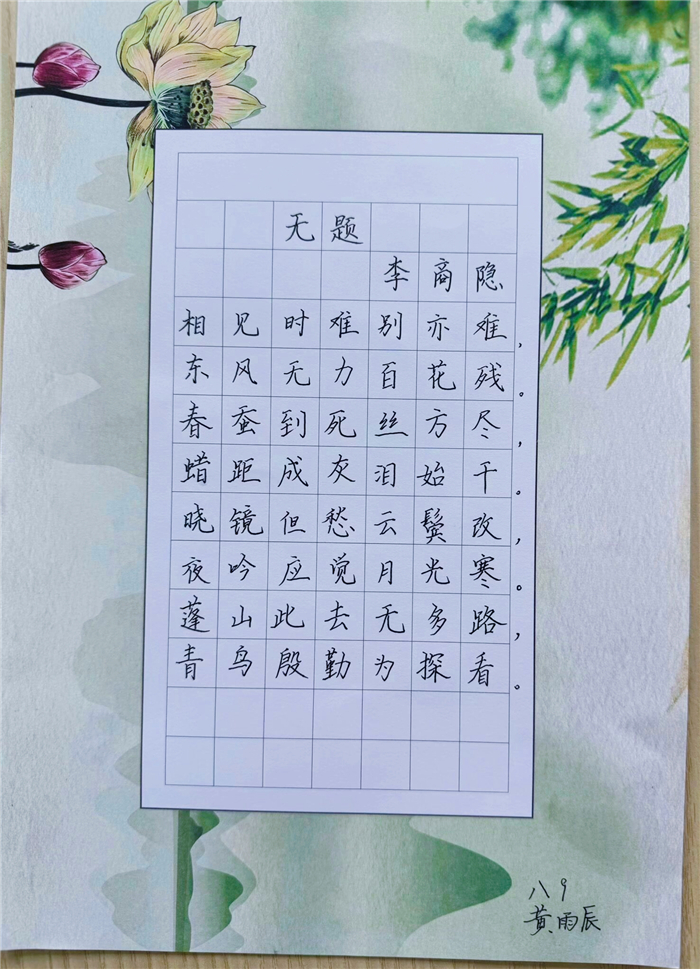 无题
李商隐
相见时难别亦难,
东风无力百花残。
春蚕到死丝方尽,
蜡距成灰泪始干。
晓镜但愁云鬓改,
夜吟应觉月光寒。
蓬山此去无多路,
青鸟殷勤为探看。
八9
黄雨辰